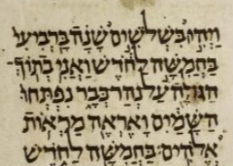 וַיְהִי בִּשְׁלֹשִׁים שָׁנָה בָּרְבִיעִי
בַּחֲמִשָּׁה לַחֹדֶשׁ וַאֲנִי בְתוֹךְ
הַגּוֹלָה עַל נְהַר כְּבָר נִפְתְּחוּ
הַשָּׁמַיִם וָאֶרְאֶה מַרְאוֹת
אֱלֹהִים׃ בַּחֲמִשָּׁה לַחֹדֶשׁ